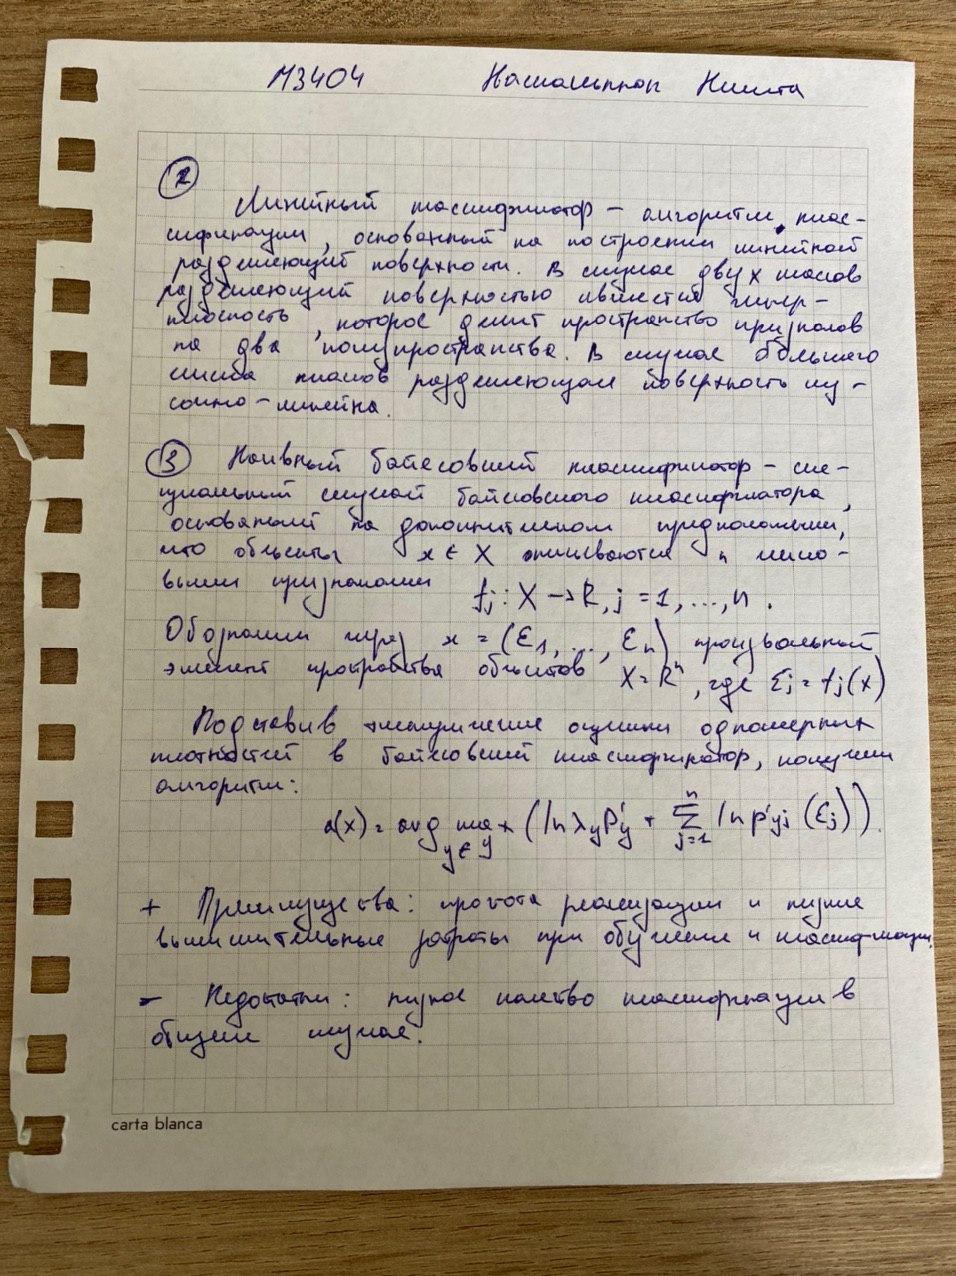 М3404 Никита
②
Линейный классификатор – алгоритм клас-
сификации, основанный на построении линейной
разделяющей поверхности. В случае двух классов
разделяющей поверхностью является гипер-
плоскость, которое делит пространство признаков
на два полупространства. В случае большего
числа классов разделяющая поверхность ку-
сочно-линейна.
③ Наивный байесовский классификатор – спе-
циальный случай байесовского классификатора,
основаный на дополнительном предположении,
что объекты x ∈ X описываются n число-
выми признаками fj : X → R, j = 1, ..., n.
Обозначим через x = (ε1, ..., εn) произвольный
элемент пространства объектов X = Rⁿ, где εj = fj(x)
Подставив эмпирические оценки одномерных
плотностей в байесовский классификатор, получим
алгоритм:
a(x) = arg max y∈Y (ln λy P'y + Σ j=1 n ln p'yj (εj)).
+ Преимущества: простота реализации и низкие
вычислительные затраты при обучении и классификации.
- Недостатки: низкое качество классификации в
общем случае.
carta blanca